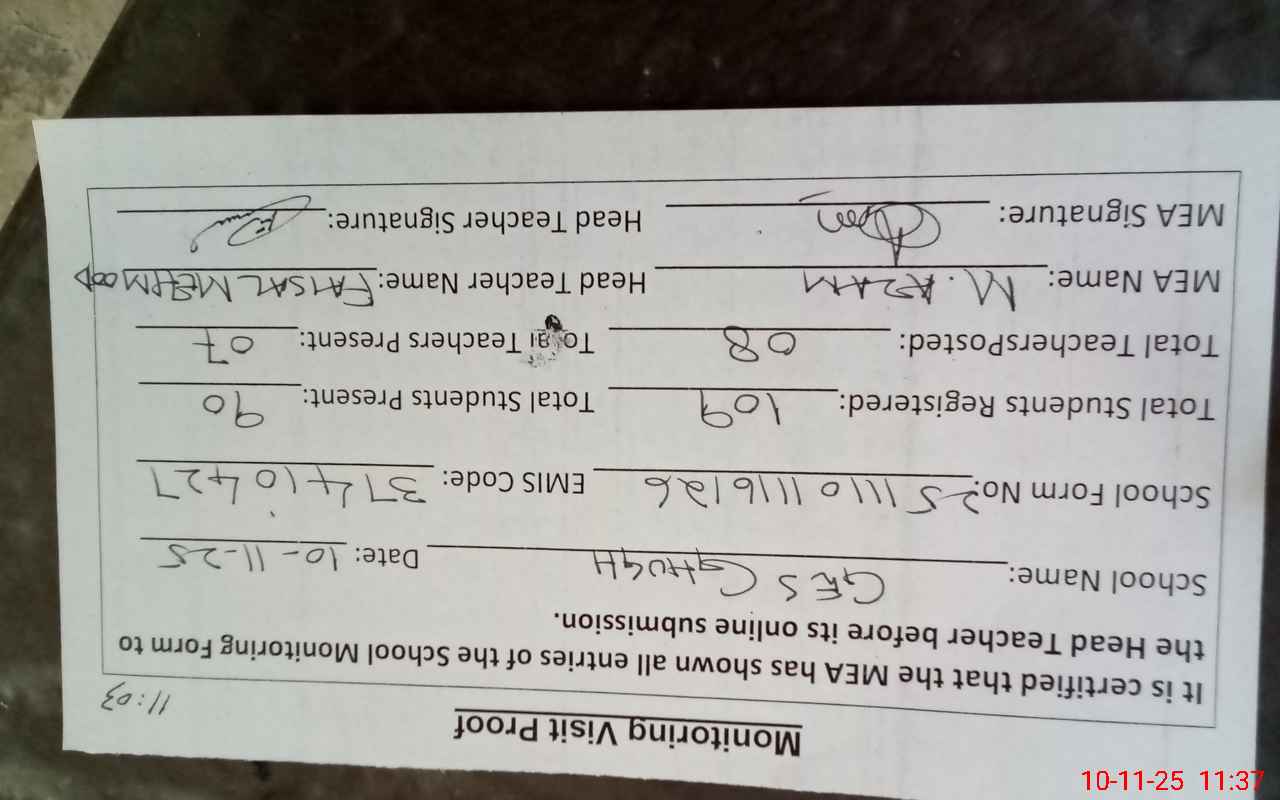 Monitoring Visit Proof
11:03
It is certified that the MEA has shown all entries of the School Monitoring Form to
the Head Teacher before its online submission.
School Name: GES GHUGH Date: 10-11-25
School Form No: 2511101116126 EMIS Code: 37410427
Total Students Registered: 109 Total Students Present: 90
Total TeachersPosted: 08 Total Teachers Present: 07
MEA Name: M. AZAM Head Teacher Name: FAISAL MEHMOOD
MEA Signature: Head Teacher Signature:
10-11-25 11:37